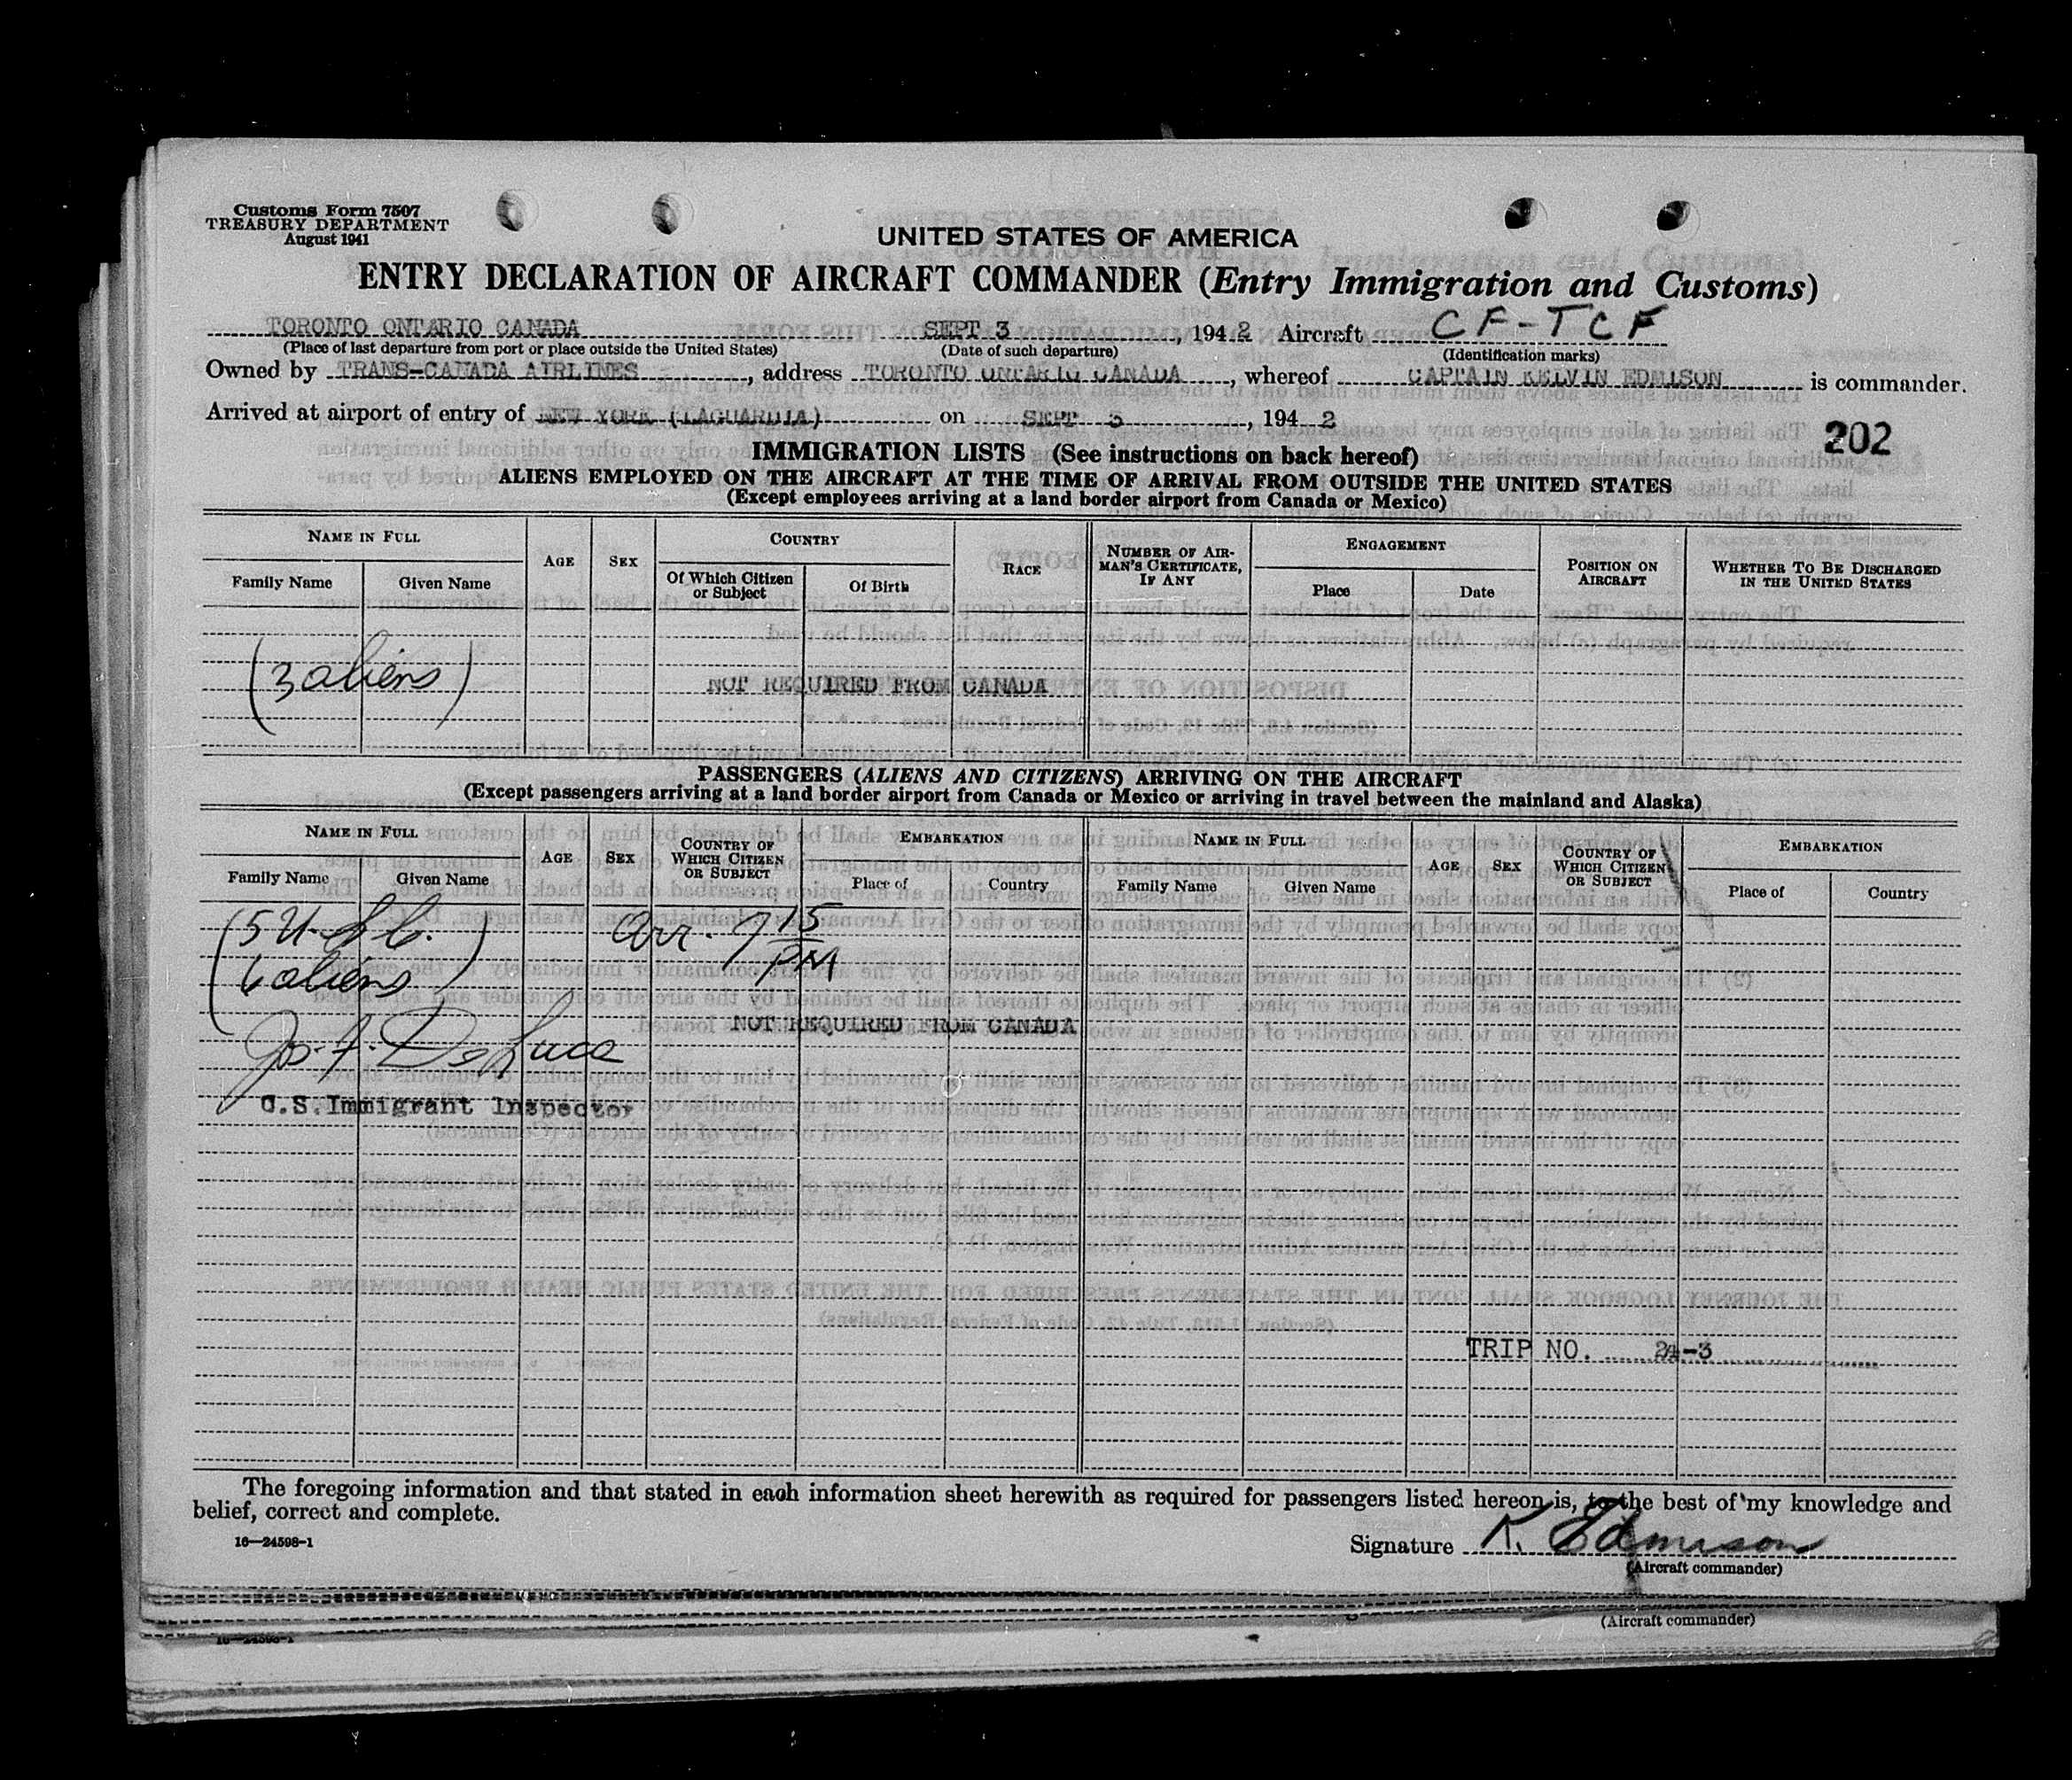 Customs Form 7507
TREASURY DEPARTMENT
August 1941
UNITED STATES OF AMERICA
ENTRY DECLARATION OF AIRCRAFT COMMANDER (Entry Immigration and Customs)
TORONTO ONTARIO CANADA SEPT 3, 1942 Aircraft CF-TCF
(Place of last departure from port or place outside the United States) (Date of such departure) (Identification marks)
Owned by TRANS-CANADA AIRLINES, address TORONTO ONTARIO CANADA, whereof CAPTAIN KELVIN EDMISON is commander.
Arrived at airport of entry of NEW YORK (LAGUARDIA) on SEPT 3, 1942
202
IMMIGRATION LISTS (See instructions on back hereof)
ALIENS EMPLOYED ON THE AIRCRAFT AT THE TIME OF ARRIVAL FROM OUTSIDE THE UNITED STATES
(Except employees arriving at a land border airport from Canada or Mexico)
NAME IN FULL AGE SEX COUNTRY RACE NUMBER OF AIRMAN'S CERTIFICATE, IF ANY ENGAGEMENT POSITION ON AIRCRAFT WHETHER TO BE DISCHARGED IN THE UNITED STATES
Family Name Given Name Of Which Citizen or Subject Of Birth Place Date
(3 aliens)
NOT REQUIRED FROM CANADA
PASSENGERS (ALIENS AND CITIZENS) ARRIVING ON THE AIRCRAFT
(Except passengers arriving at a land border airport from Canada or Mexico or arriving in travel between the mainland and Alaska)
NAME IN FULL AGE SEX COUNTRY OF WHICH CITIZEN OR SUBJECT EMBARKATION NAME IN FULL AGE SEX COUNTRY OF WHICH CITIZEN OR SUBJECT EMBARKATION
Family Name Given Name Place of Country Family Name Given Name Place of Country
(5 U.S.C. Arr. 7 15
6 aliens) PM
NOT REQUIRED FROM CANADA
Jos. F. DeLuca
U.S.Immigrant Inspector
TRIP NO. 24-3
The foregoing information and that stated in each information sheet herewith as required for passengers listed hereon is, to the best of my knowledge and
belief, correct and complete.
16—24598-1
Signature K. Edmison
(Aircraft commander)
(Aircraft commander)